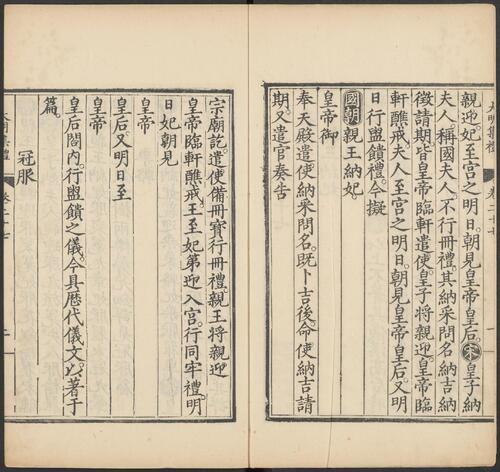 親迎妃至宮之明日朝見皇帝皇后宋皇子納
夫人稱國夫人不行冊禮其納采問名納吉納
徵請期皆皇帝臨軒遣使皇子將親迎皇帝臨
軒醮戒夫人至宮之明日朝見皇帝皇后又明
日行盥饋禮今擬
國朝親王納妃
皇帝御
奉天殿遣使納采問名既卜吉後命使納吉請
期又遣官奏告
宗廟訖遣使備冊寶行冊禮親王將親迎
皇帝臨軒醮戒王至妃第迎入宮行同牢禮明
日妃朝見
皇帝
皇后又明日至
皇帝
皇后閤內行盥饋之儀今具歷代儀文以著于
篇
冠服
卷二十七
二